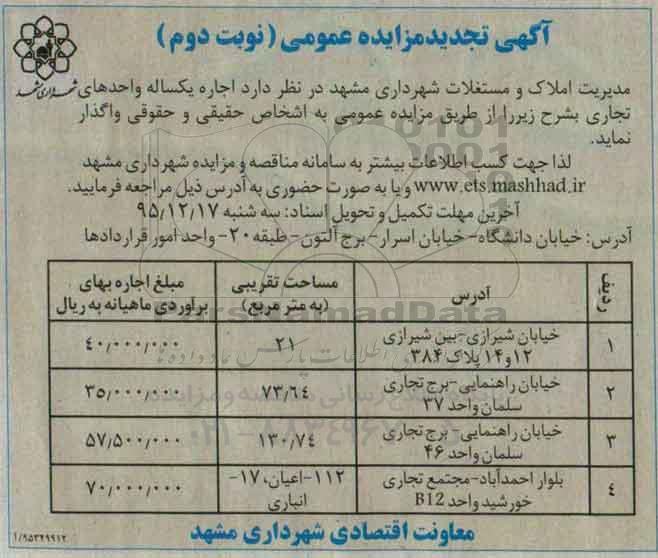 آگهی تجدیدمزایده عمومی (نوبت دوم)
شهرداری مشهد
مدیریت املاک و مستغلات شهرداری مشهد در نظر دارد اجاره یکساله واحدهای
تجاری بشرح زیررا از طریق مزایده عمومی به اشخاص حقیقی و حقوقی واگذار
نماید.
لذا جهت کسب اطلاعات بیشتر به سامانه مناقصه و مزایده شهرداری مشهد
www.ets.mashhad.ir و یا به صورت حضوری به آدرس ذیل مراجعه فرمایید.
آخرین مهلت تکمیل و تحویل اسناد: سه شنبه ۹۵/۱۲/۱۷
آدرس: خیابان دانشگاه- خیابان اسرار- برج آلتون- طبقه۲۰- واحد امور قراردادها
ردیف
آدرس
مساحت تقریبی
(به متر مربع)
مبلغ اجاره بهای
برآوردی ماهیانه به ریال
۱
خیابان شیرازی-بین شیرازی
۱۲و۱۴ پلاک ۳۸۴
۲۱
۴۰/۰۰۰/۰۰۰
۲
خیابان راهنمایی-برج تجاری
سلمان واحد ۳۷
۷۳/۶۴
۳۵/۰۰۰/۰۰۰
۳
خیابان راهنمایی- برج تجاری
سلمان واحد ۴۶
۱۳۰/۷۴
۵۷/۵۰۰/۰۰۰
۴
بلوار احمدآباد-مجتمع تجاری
خورشید واحد B12
۱۱۲-اعیان، ۱۷-
انباری
۷۰/۰۰۰/۰۰۰
معاونت اقتصادی شهرداری مشهد
۱/۹۵۳۲۹۹۱۲
ParsNamadData